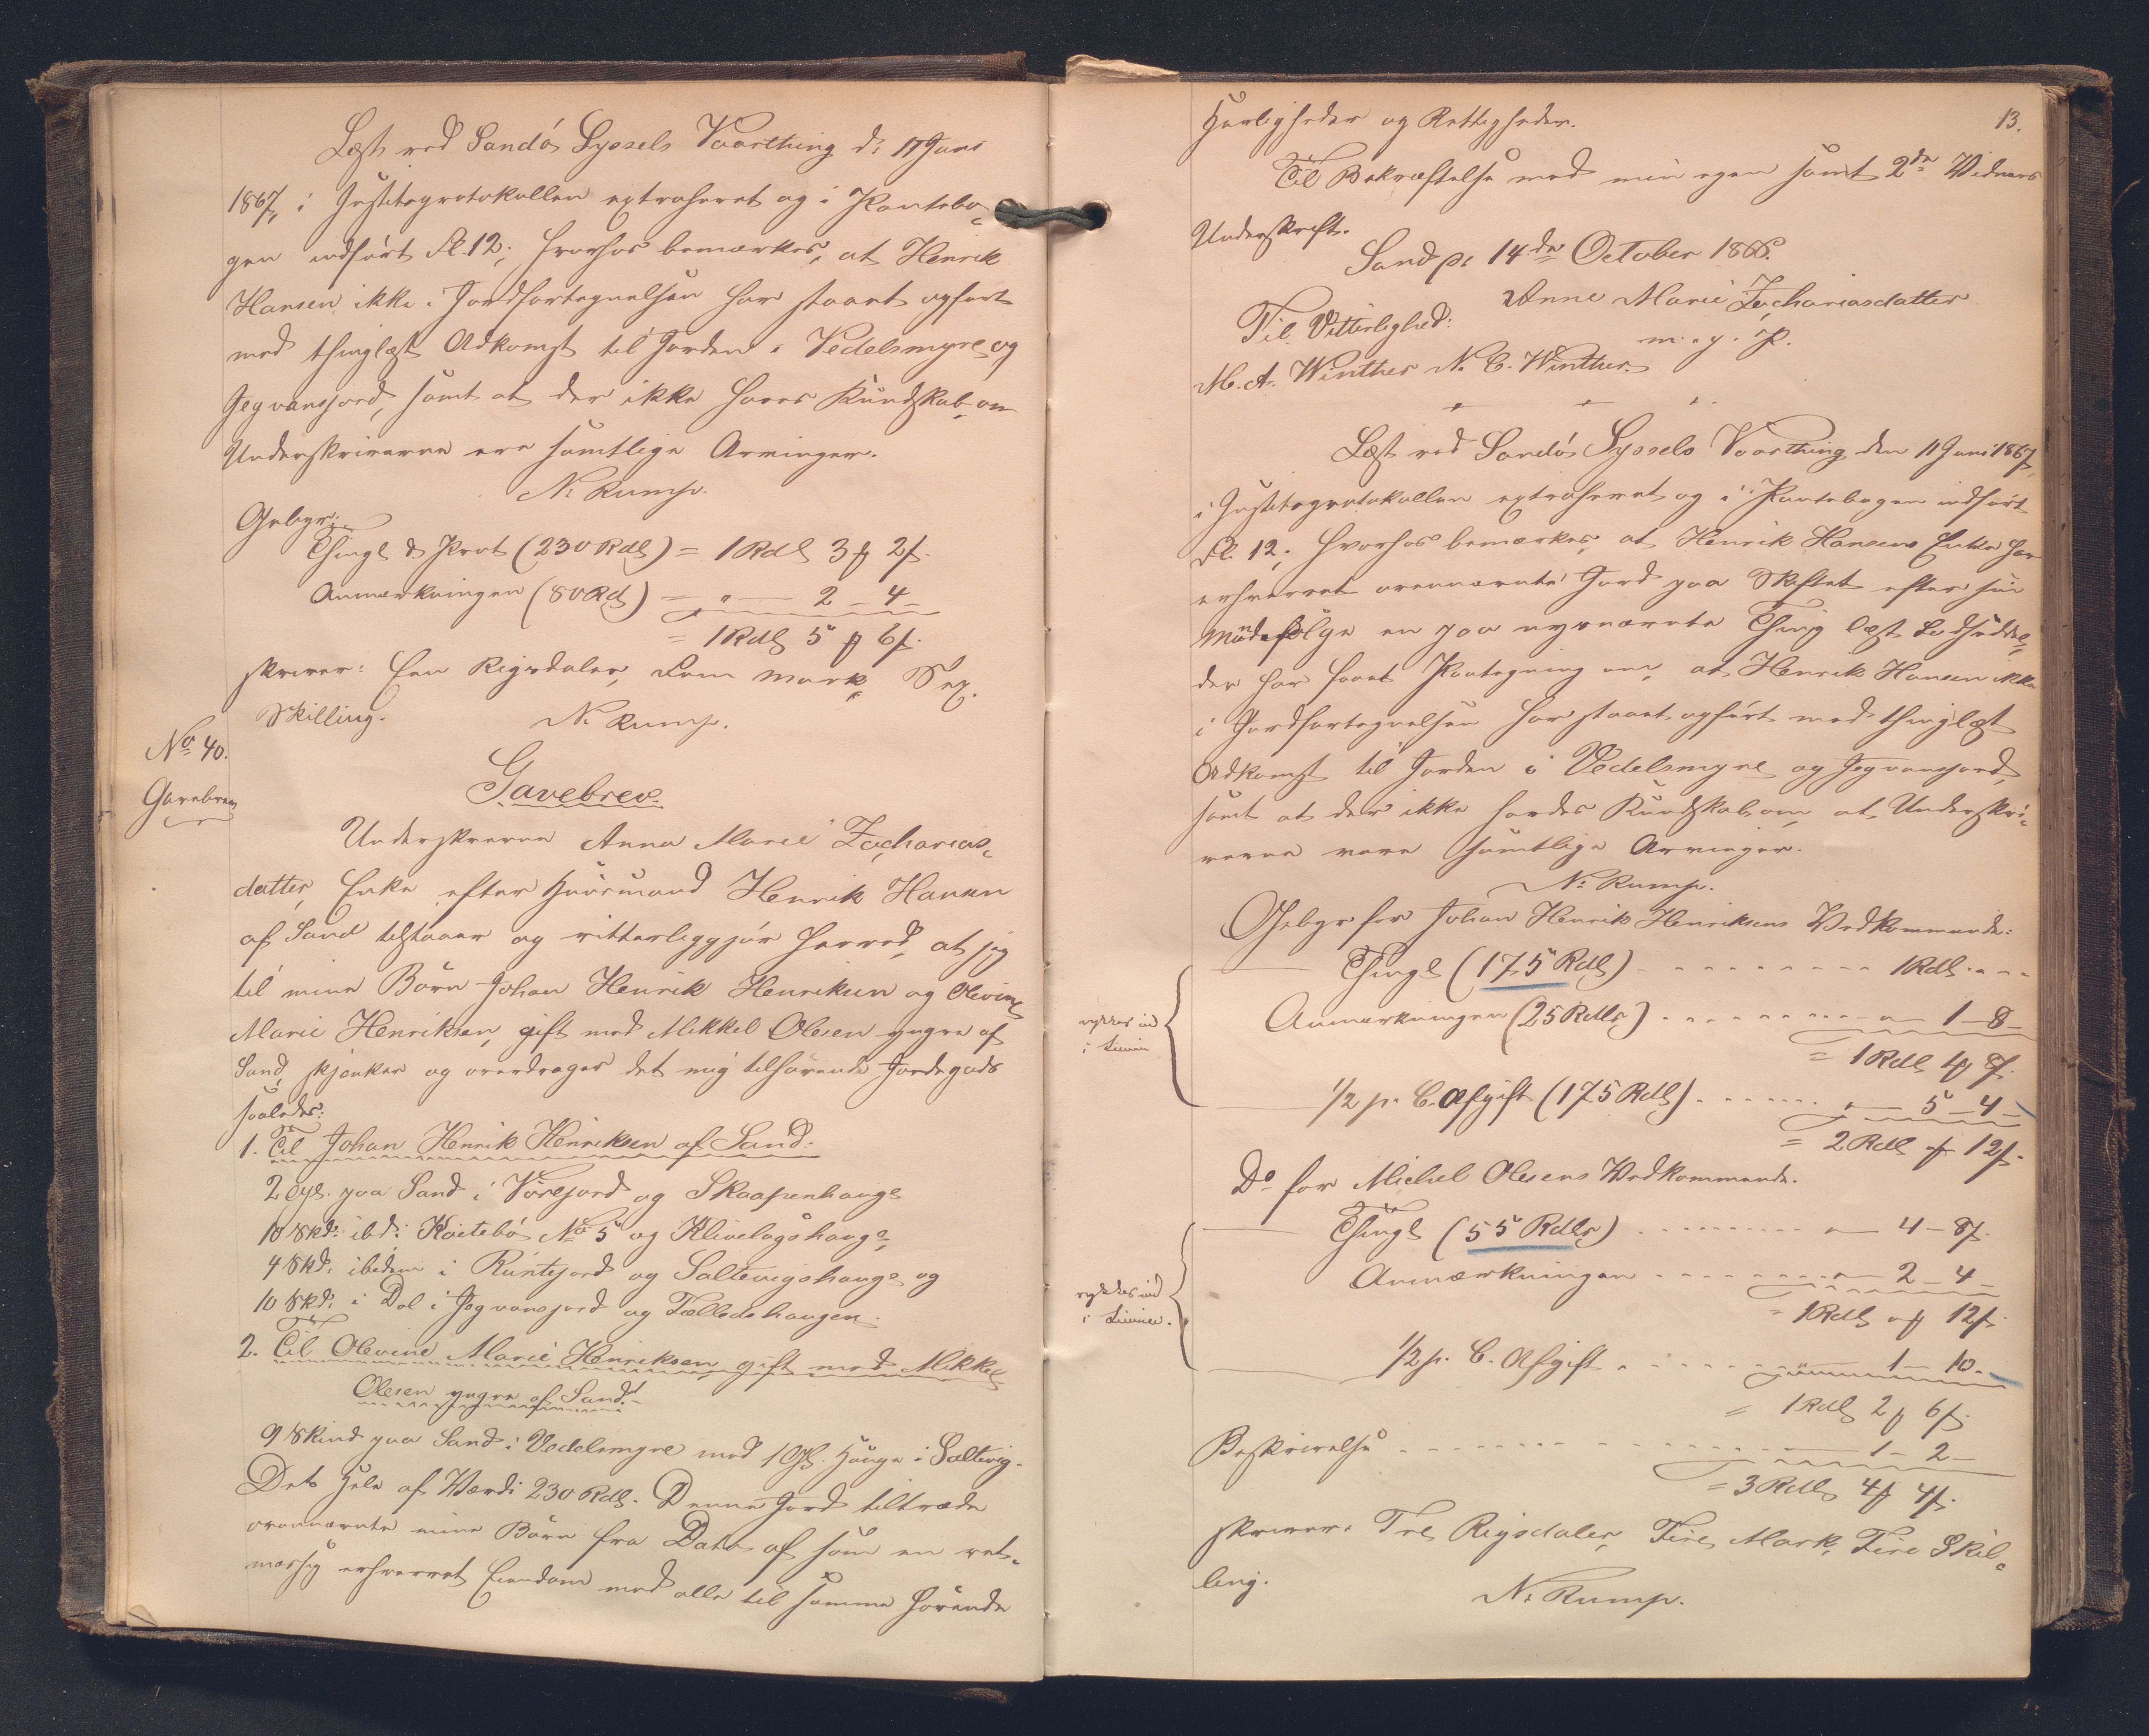 Læst ved Sandø Syssels Vaarthing d: 11 Juni
1867, i Justitsprotokollen extraheret og i Pantebo-
gen indført Fl. 12; hvorhos bemærkes, at Henrik
Hansen ikke i Jordfortegnelsen har staaet opført
med thinglæst Adkomst til Jorden i Vedelsmyre og
Jegvansjord, samt at der ikke haves Kundskab om
Underskriverne ere samtlige Arvinger.
N. Rump.
Gebyr:
Thingl & Prot (230 Rdl) = 1 Rdl 3 ₰ 2 ſ.
Anmærkningen (80 Rd) = " — 2 — 4 —
= 1 Rdl 5 ₰ 6 ſ.
skriver: Een Rigsdaler, Fem Mark, Sex
Skilling.
N. Rump.
No 40.
Gavebrev
Gavebrev.
Underskrevne Anna Marie Zacharias-
datter, Enke efter Huusmand Henrik Hansen
af Sand tilstaaer og vitterliggjør herved, at jeg
til mine Børn Johan Henrik Henriksen og Olevine
Marie Henriksen, gift med Mikkel Olesen yngre af
Sand, skjenker og overdrager det mig tilhørende Jordegods
saaledes:
1. Til Johan Henrik Henriksen af Sand:
2 Gyl. paa Sand i Vørejord og Skaapenhauge
10 Skd: ibd: Kvitebø No 5 og Klivelogshauge,
4 Skd. ibidem i Runtejord og Saltevigshauge og
10 Skd. i Dal i Jegvansjord og Fælledshaugen.
2. Til Olevine Marie Henriksen, gift med Mikkel
Olesen yngre af Sand.
9 Skind paa Sand i Vedelsmyre med 1 Gl. Hauge i Saltevig.
Dets Hele af Værdi 230 Rdl. Denne Jord tiltræde
ovennævnte mine Børn fra Dato af som en ret-
mæssig erhvervet Eiendom med alle til samme hørende
13.
Herligheder og Rettigheder.
Til Bekræftelse med min egen samt 2de Vidners
Underskrift.
Sand p: 14de October 1866.
Anne Marie Zachariasdatter
m. p. P.
Til Vitterlighed:
M. A. Winther N. C. Winther.
Læst ved Sandø Syssels Vaarthing den 11 Juni 1867,
i Justitsprotokollen extraheret og i Pantebogen indført
Fl. 12; hvorhos bemærkes, at Henrik Hansens Enke har
erhvervet ovennævnte Jord paa Skiftet efter sin
Mand ifølge en paa nysnævnte Thing læst Lodseddel,
der har faaet Paategning om, at Henrik Hansen ikke
i Jordfortegnelsen har staaet opført med thinglæst
Adkomst til Jorden i Vedelsmyre og Jegvansjord,
samt at der ikke havdes Kundskab om, at Underskri-
verne vare samtlige Arvinger.
N. Rump.
Gebyr for Johan Henrik Henriksens Vedkommende:
Thingl (175 Rdl) - - - 1 Rdl. - - -
rykkes ind
i Linien
Anmærkningen (25 Rdlr) - - - " — 1 — 8 —
= 1 Rdl 1 ₰ 8 ſ.
1/2 p. C. Afgift (175 Rdl) - - - " — 5 — 4 —
= 2 Rdl " ₰ 12 ſ.
Do for Michel Olesens Vedkommende.
Thingl (55 Rdlr) - - - " — 4 — 8 ſ.
rykkes ind
i Linien.
Anmærkningen - - - " — 2 — 4 —
= 1 Rdl " ₰ 12 ſ.
1/2 p. C. Afgift - - - " — 1 — 10 —
= 1 Rdl 2 ₰ 6 ſ.
Beskrivelse - - - 1 — 2 —
= 3 Rdl 4 ₰ 4 ſ.
skriver: Tre Rigsdaler, Fire Mark, Fire Skil-
ling.
N. Rump.